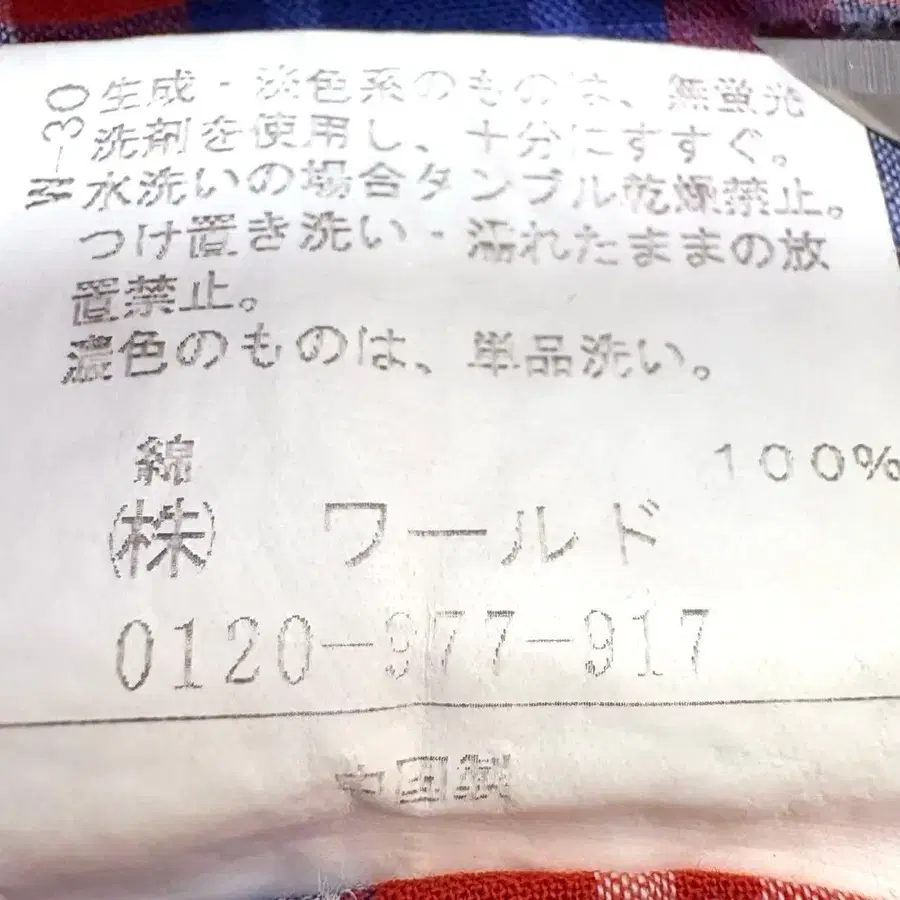 W-30
生成・淡色系のものは、無蛍光
洗剤を使用し、十分にすすぐ。
水洗いの場合タンブル乾燥禁止。
つけ置き洗い・濡れたままの放
置禁止。
濃色のものは、単品洗い。
綿 100%
㈱ ワールド
0120-977-917
中国製